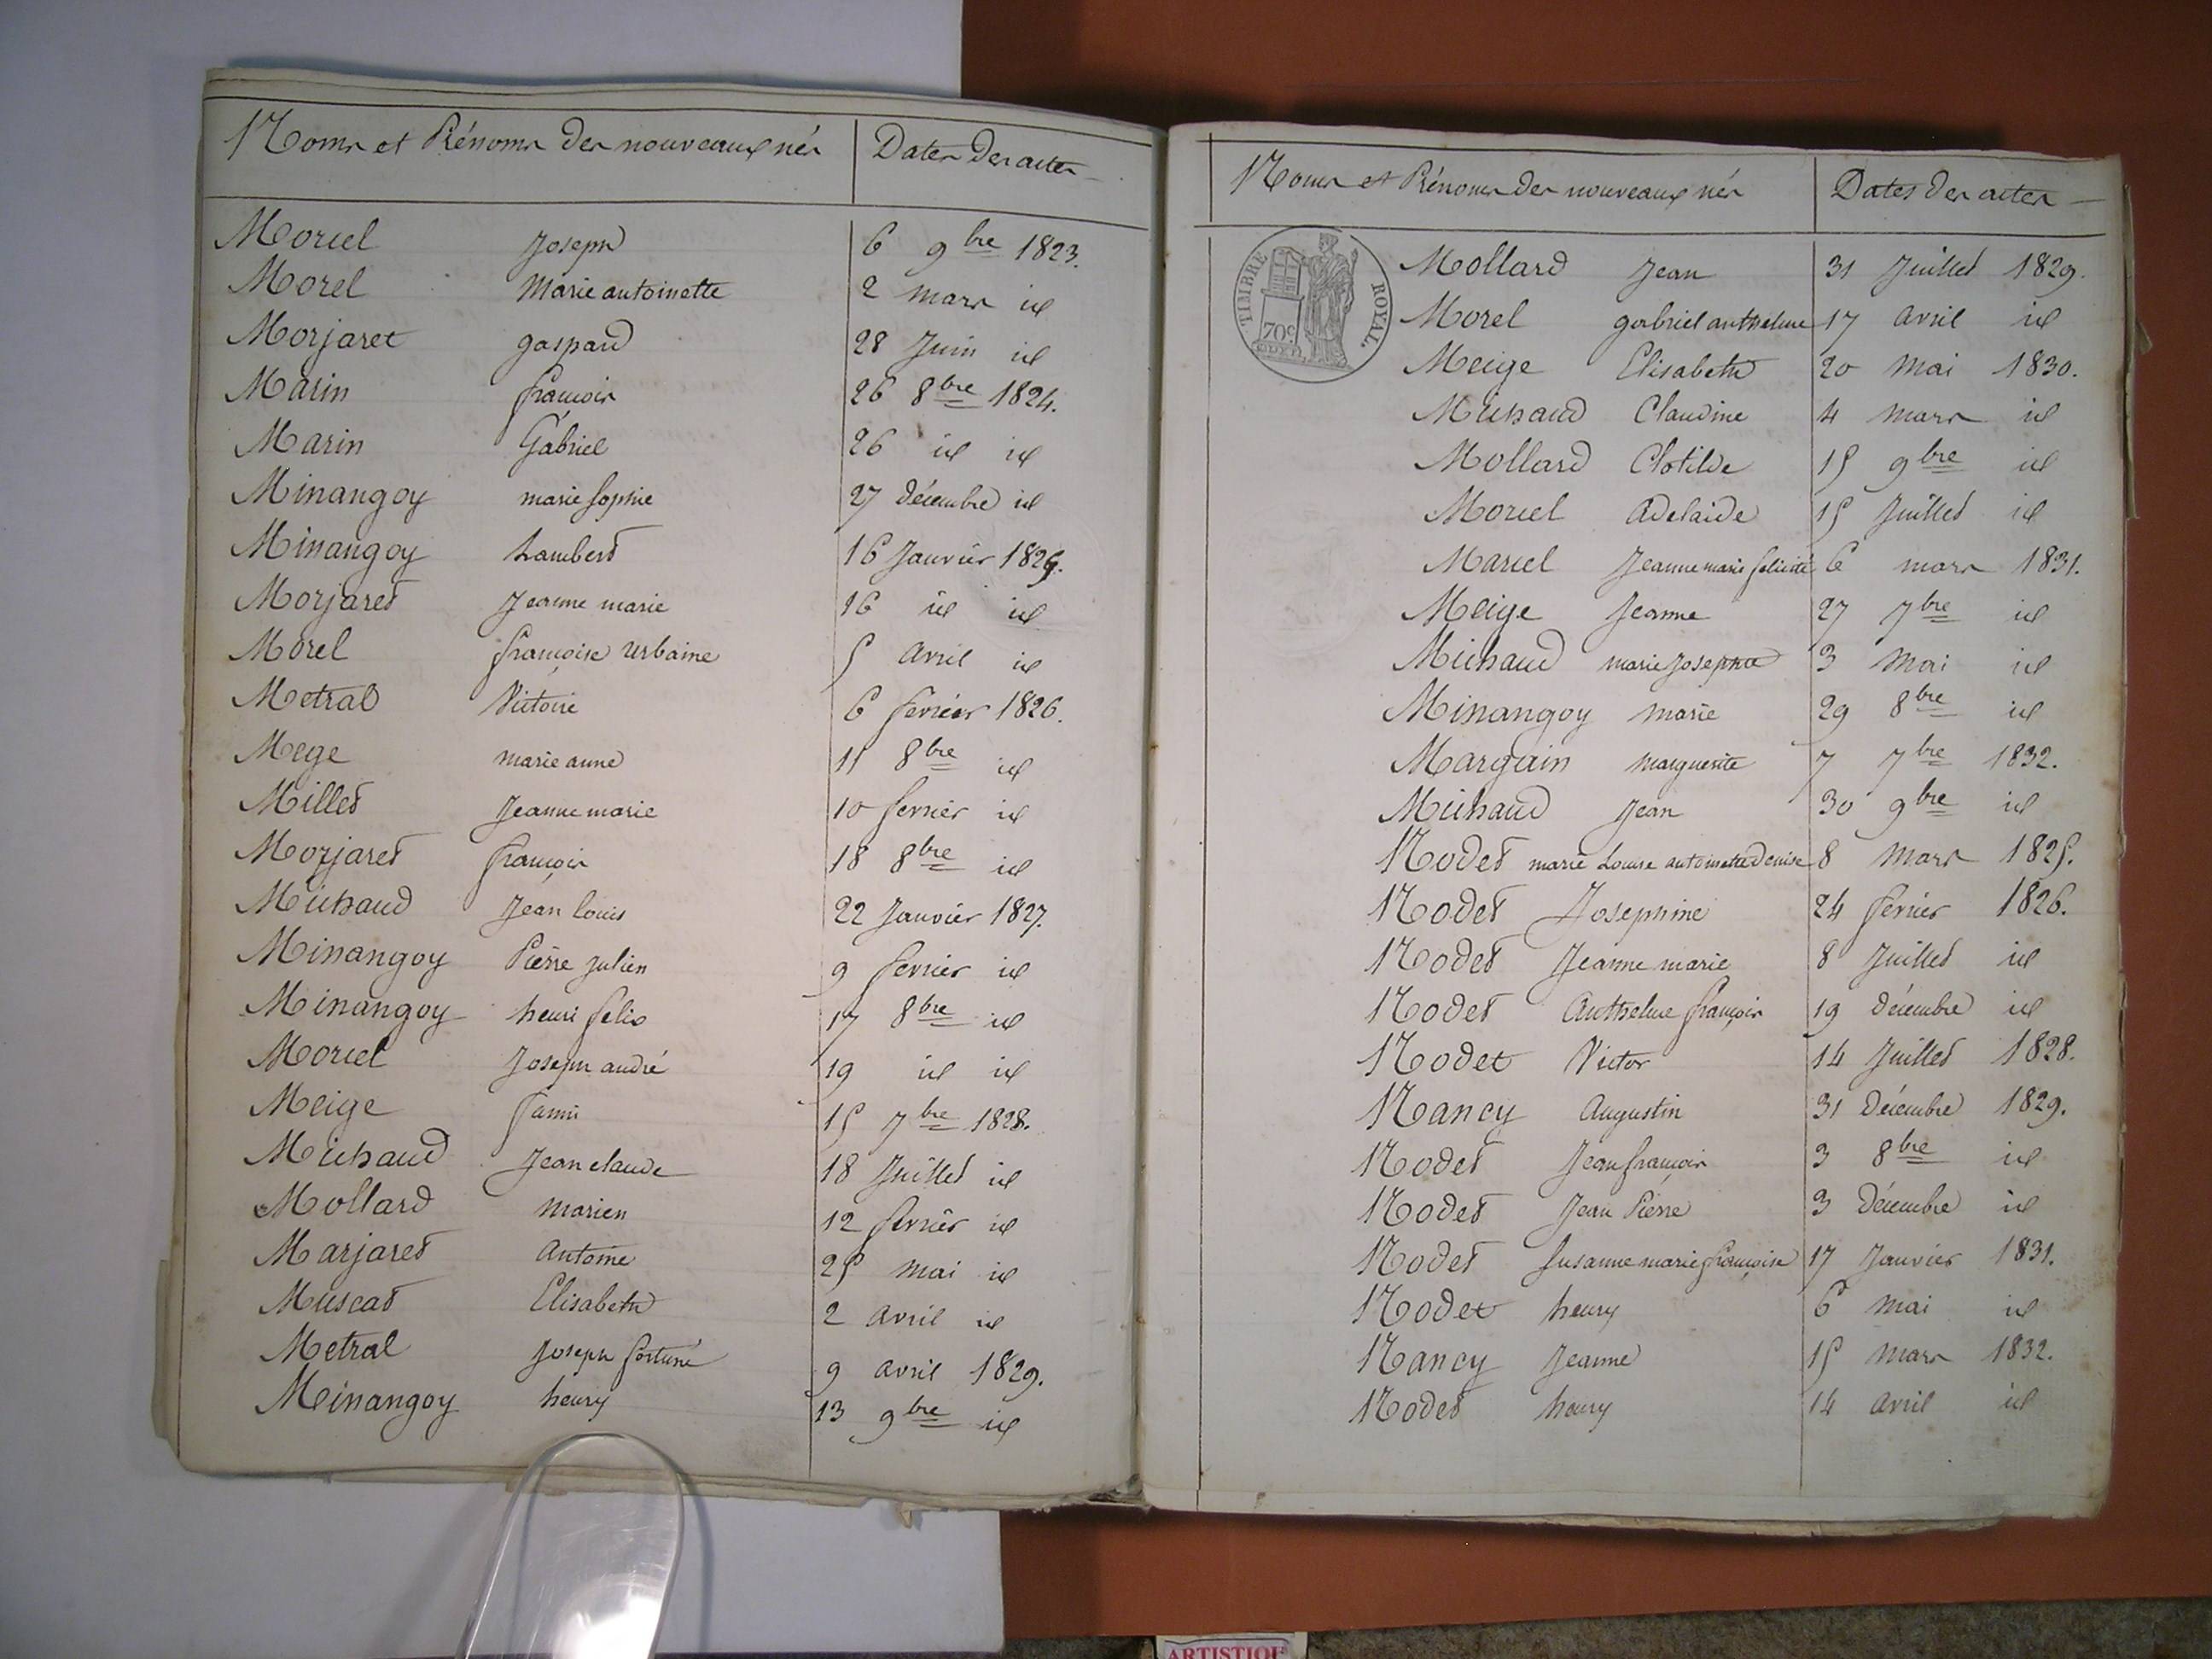 Noms et Prénoms des nouveaux nés Dates des actes
Moriel Joseph 6 9bre 1823.
Morel Marie antoinette 2 mars id
Morjaret gaspard 28 Juin id
Marin françois 26 8bre 1824.
Marin Gabriel 26 id id
Minangoy marie Sophie 27 décembre id
Minangoy Lambert 16 Janvier 1825.
Morjaret Jeanne marie 16 id id
Morel françoise Urbaine 5 avril id
Metral Victoire 6 fevrier 1826.
Mege marie anne 11 8bre id
Millet Jeanne marie 10 fevrier id
Morjaret françois 18 8bre id
Michaud Jean louis 22 Janvier 1827.
Minangoy Pierre Julien 9 fevrier id
Minangoy henri felix 17 8bre id
Moriel Joseph andré 19 id id
Meige fanni 15 7bre 1828.
Michaud Jean claude 18 Juillet id
Mollard Marien 12 fevrier id
Marjaret Antoine 25 mai id
Muscat Elisabeth 2 avril id
Metral Joseph fortuné 9 avril 1829.
Minangoy henry 13 9bre id
Noms et Prénoms des nouveaux nés Dates des actes
TIMBRE ROYAL
70c
Mollard Jean 31 Juillet 1829.
Morel gabriel anthelme 17 avril id
Meige Elisabeth 20 Mai 1830.
Michaud Claudine 4 mars id
Mollard Clotilde 15 9bre id
Moriel Adelaide 15 Juillet id
Mariel Jeanne marie felicité 6 mars 1831.
Meige Jeanne 27 7bre id
Michaud marie Josephte 3 Mai id
Minangoy Marie 29 8bre id
Margain Marguerite 7 7bre 1832.
Michaud Jean 30 9bre id
Nodet marie Louise antoinette Denise 8 Mars 1825.
Nodet Josephine 24 fevrier 1826.
Nodet Jeanne marie 8 Juillet id
Nodet Anthelme françois 19 décembre id
Nodet Victor 14 Juillet 1828.
Nancy Augustin 31 Décembre 1829.
Nodet Jean françois 3 8bre id
Nodet Jean Pierre 3 Décembre id
Nodet Susanne marie françoise 17 Janvier 1831.
Nodet henry 6 mai id
Nancy Jeanne 15 mars 1832.
Nodet henry 14 avril id